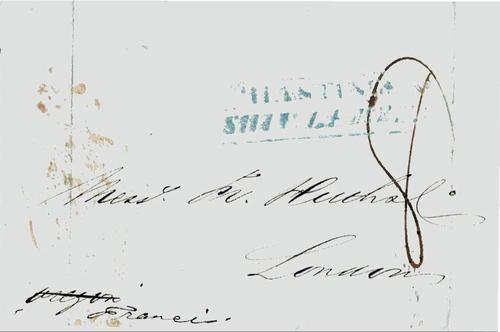 HASTINGS
SHIP LETTER
8
Mess. Fr. Huth & Co
London
Francis.